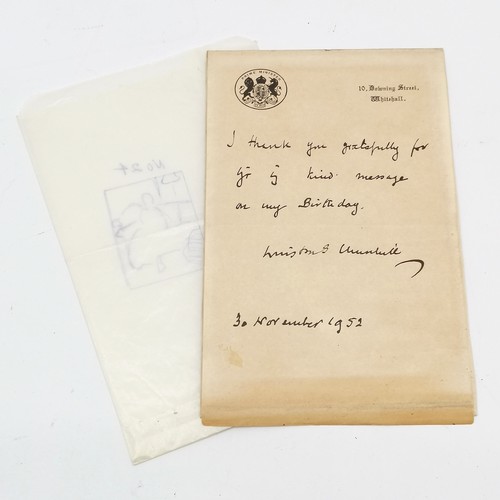 PRIME MINISTER
10, Downing Street,
Whitehall.
I thank you gratefully for
yr kind message
on my Birthday.
Winston S. Churchill
30 November 1952
No 24